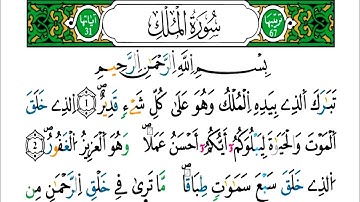 ترتيبها 67 سُورَةُ الْمُلْكِ آياتها 31
بِسْمِ اللَّهِ الرَّحْمَٰنِ الرَّحِيمِ
تَبَٰرَكَ اَ۬لذِے بِيَدِهِ اِ۬لْمُلْكُ وَهُوَ عَلَىٰ كُلِّ شَےْءٖ قَدِيرٌۖ ١ اُ۬لذِے خَلَقَ
اَ۬لْمَوْتَ وَالْحَيَوٰةَ لِيَبْلُوَكُمُۥٓ أَيُّكُمُۥٓ أَحْسَنُ عَمَلاٗۖ وَهُوَ اَ۬لْعَزِيزُ اُ۬لْغَفُورُۖ ٢
اُ۬لذِے خَلَقَ سَبْعَ سَمَٰوَٰتٖ طِبَاقاٗۖ مَّا تَر۪ىٰ فِے خَلْقِ اِ۬لرَّحْمَٰنِ مِن